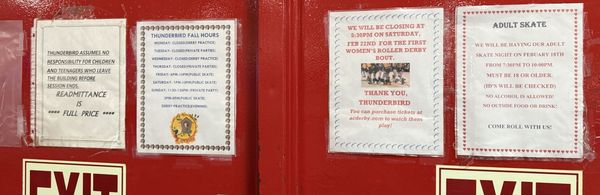 THUNDERBIRD ASSUMES NO
RESPONSIBILITY FOR CHILDREN
AND TEENAGERS WHO LEAVE
THE BUILDING BEFORE
SESSION ENDS.
READMITTANCE
IS
**** FULL PRICE ****
THUNDERBIRD FALL HOURS
MONDAY: CLOSED(DERBY PRACTICE)
TUESDAY: CLOSED(PRIVATE PARTIES)
WEDNESDAY: CLOSED(DERBY PRACTICE)
THURSDAY: CLOSED(PRIVATE PARTIES)
FRIDAY: 6PM-10PM(PUBLIC SKATE)
SATURDAY: 1PM-10PM(PUBLIC SKATE)
SUNDAY: 11:30-2:00PM (PRIVATE PARTY)
2PM-5PM(PUBLIC SKATE)
DERBY PRACTICE(EVENING)
WE WILL BE CLOSING AT
5:30PM ON SATURDAY,
FEB 22ND FOR THE FIRST
WOMEN'S ROLLER DERBY
BOUT.
THANK YOU,
THUNDERBIRD
You can purchase tickets at
acderby.com to watch them
play!
ADULT SKATE
WE WILL BE HAVING OUR ADULT
SKATE NIGHT ON FEBUARY 18TH
FROM 7:30PM TO 10:00PM
MUST BE 18 OR OLDER.
(ID'S WILL BE CHECKED)
NO ALCOHOL IS ALLOWED!
NO OUTSIDE FOOD OR DRINK!
COME ROLL WITH US!
EXIT
EXIT